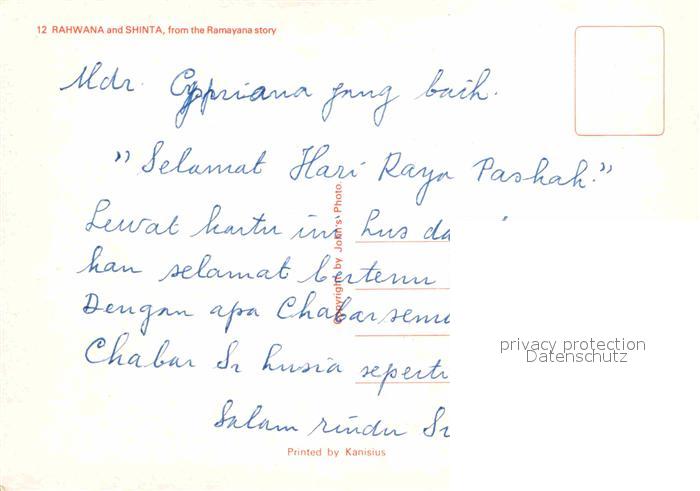 12 RAHWANA and SHINTA, from the Ramayana story
Mdr. Cypriana jang baik.
"Selamat Hari Raya Paskah."
Lewat kartu ini
kan selamat bertemu
Dengan apa Chabar semu
Chabar Sr Lusia seperti
Salam rindu Sr
Copyright by John's Photo.
Printed by Kanisius
privacy protection
Datenschutz